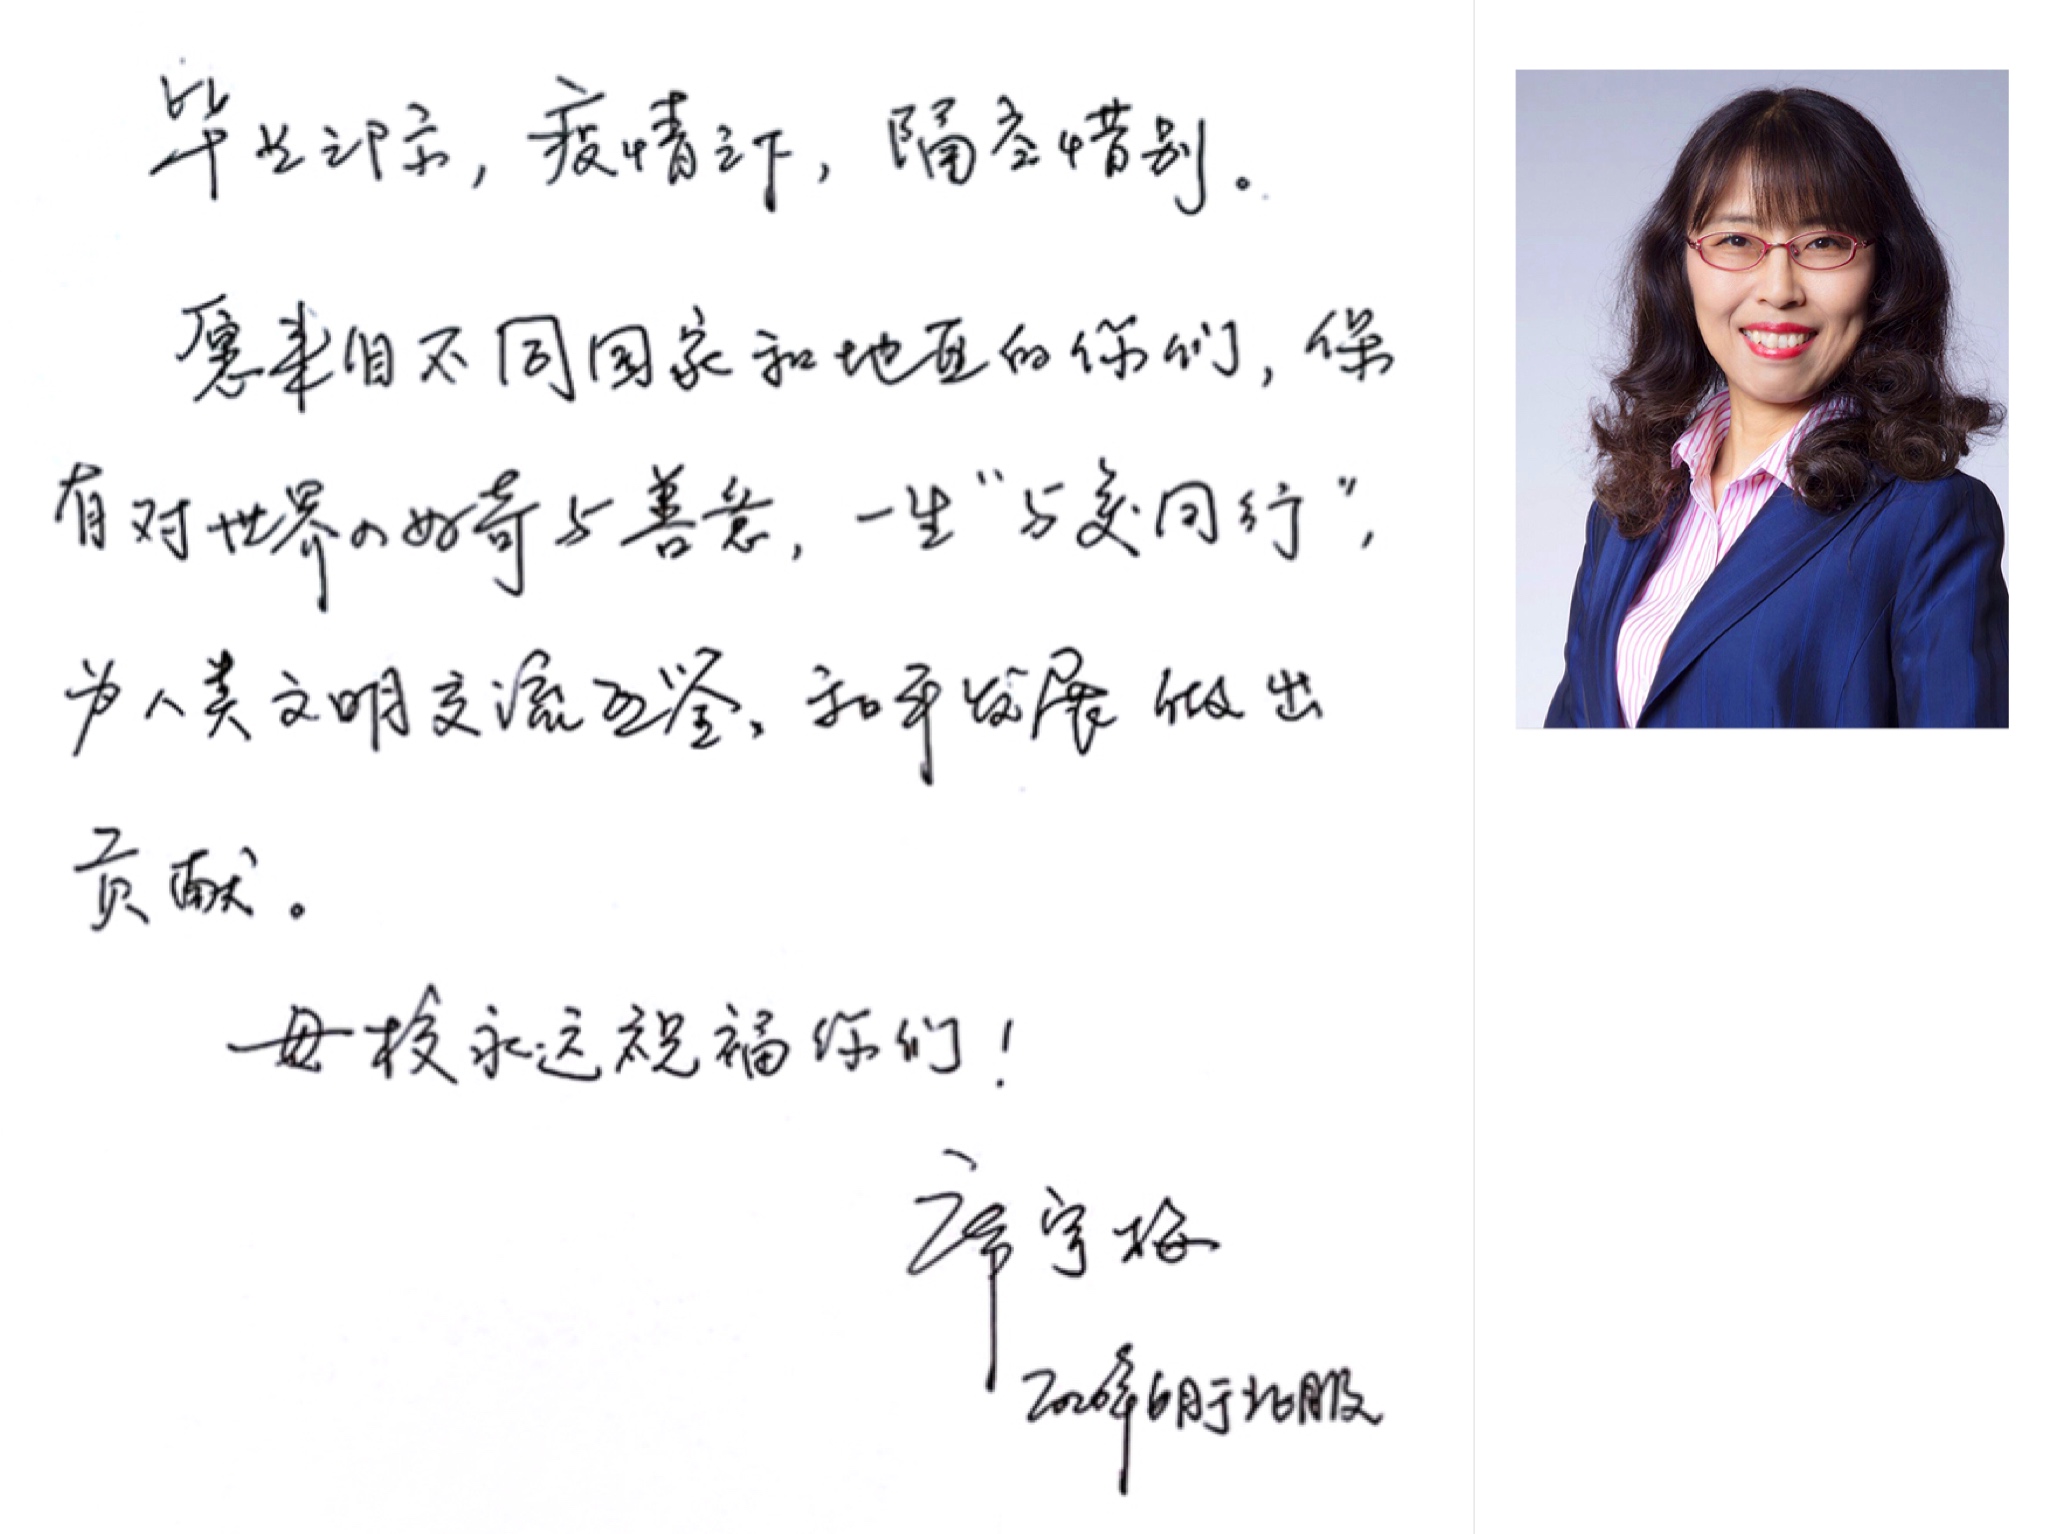 毕业印京，疫情之下，隔空惜别。
愿来自不同国家和地区的你们，保
有对世界的好奇与善意，一生“与美同行”，
为人类文明交流互鉴、和平发展做出
贡献。
母校永远祝福你们！
席宇梅
2020年6月于北服